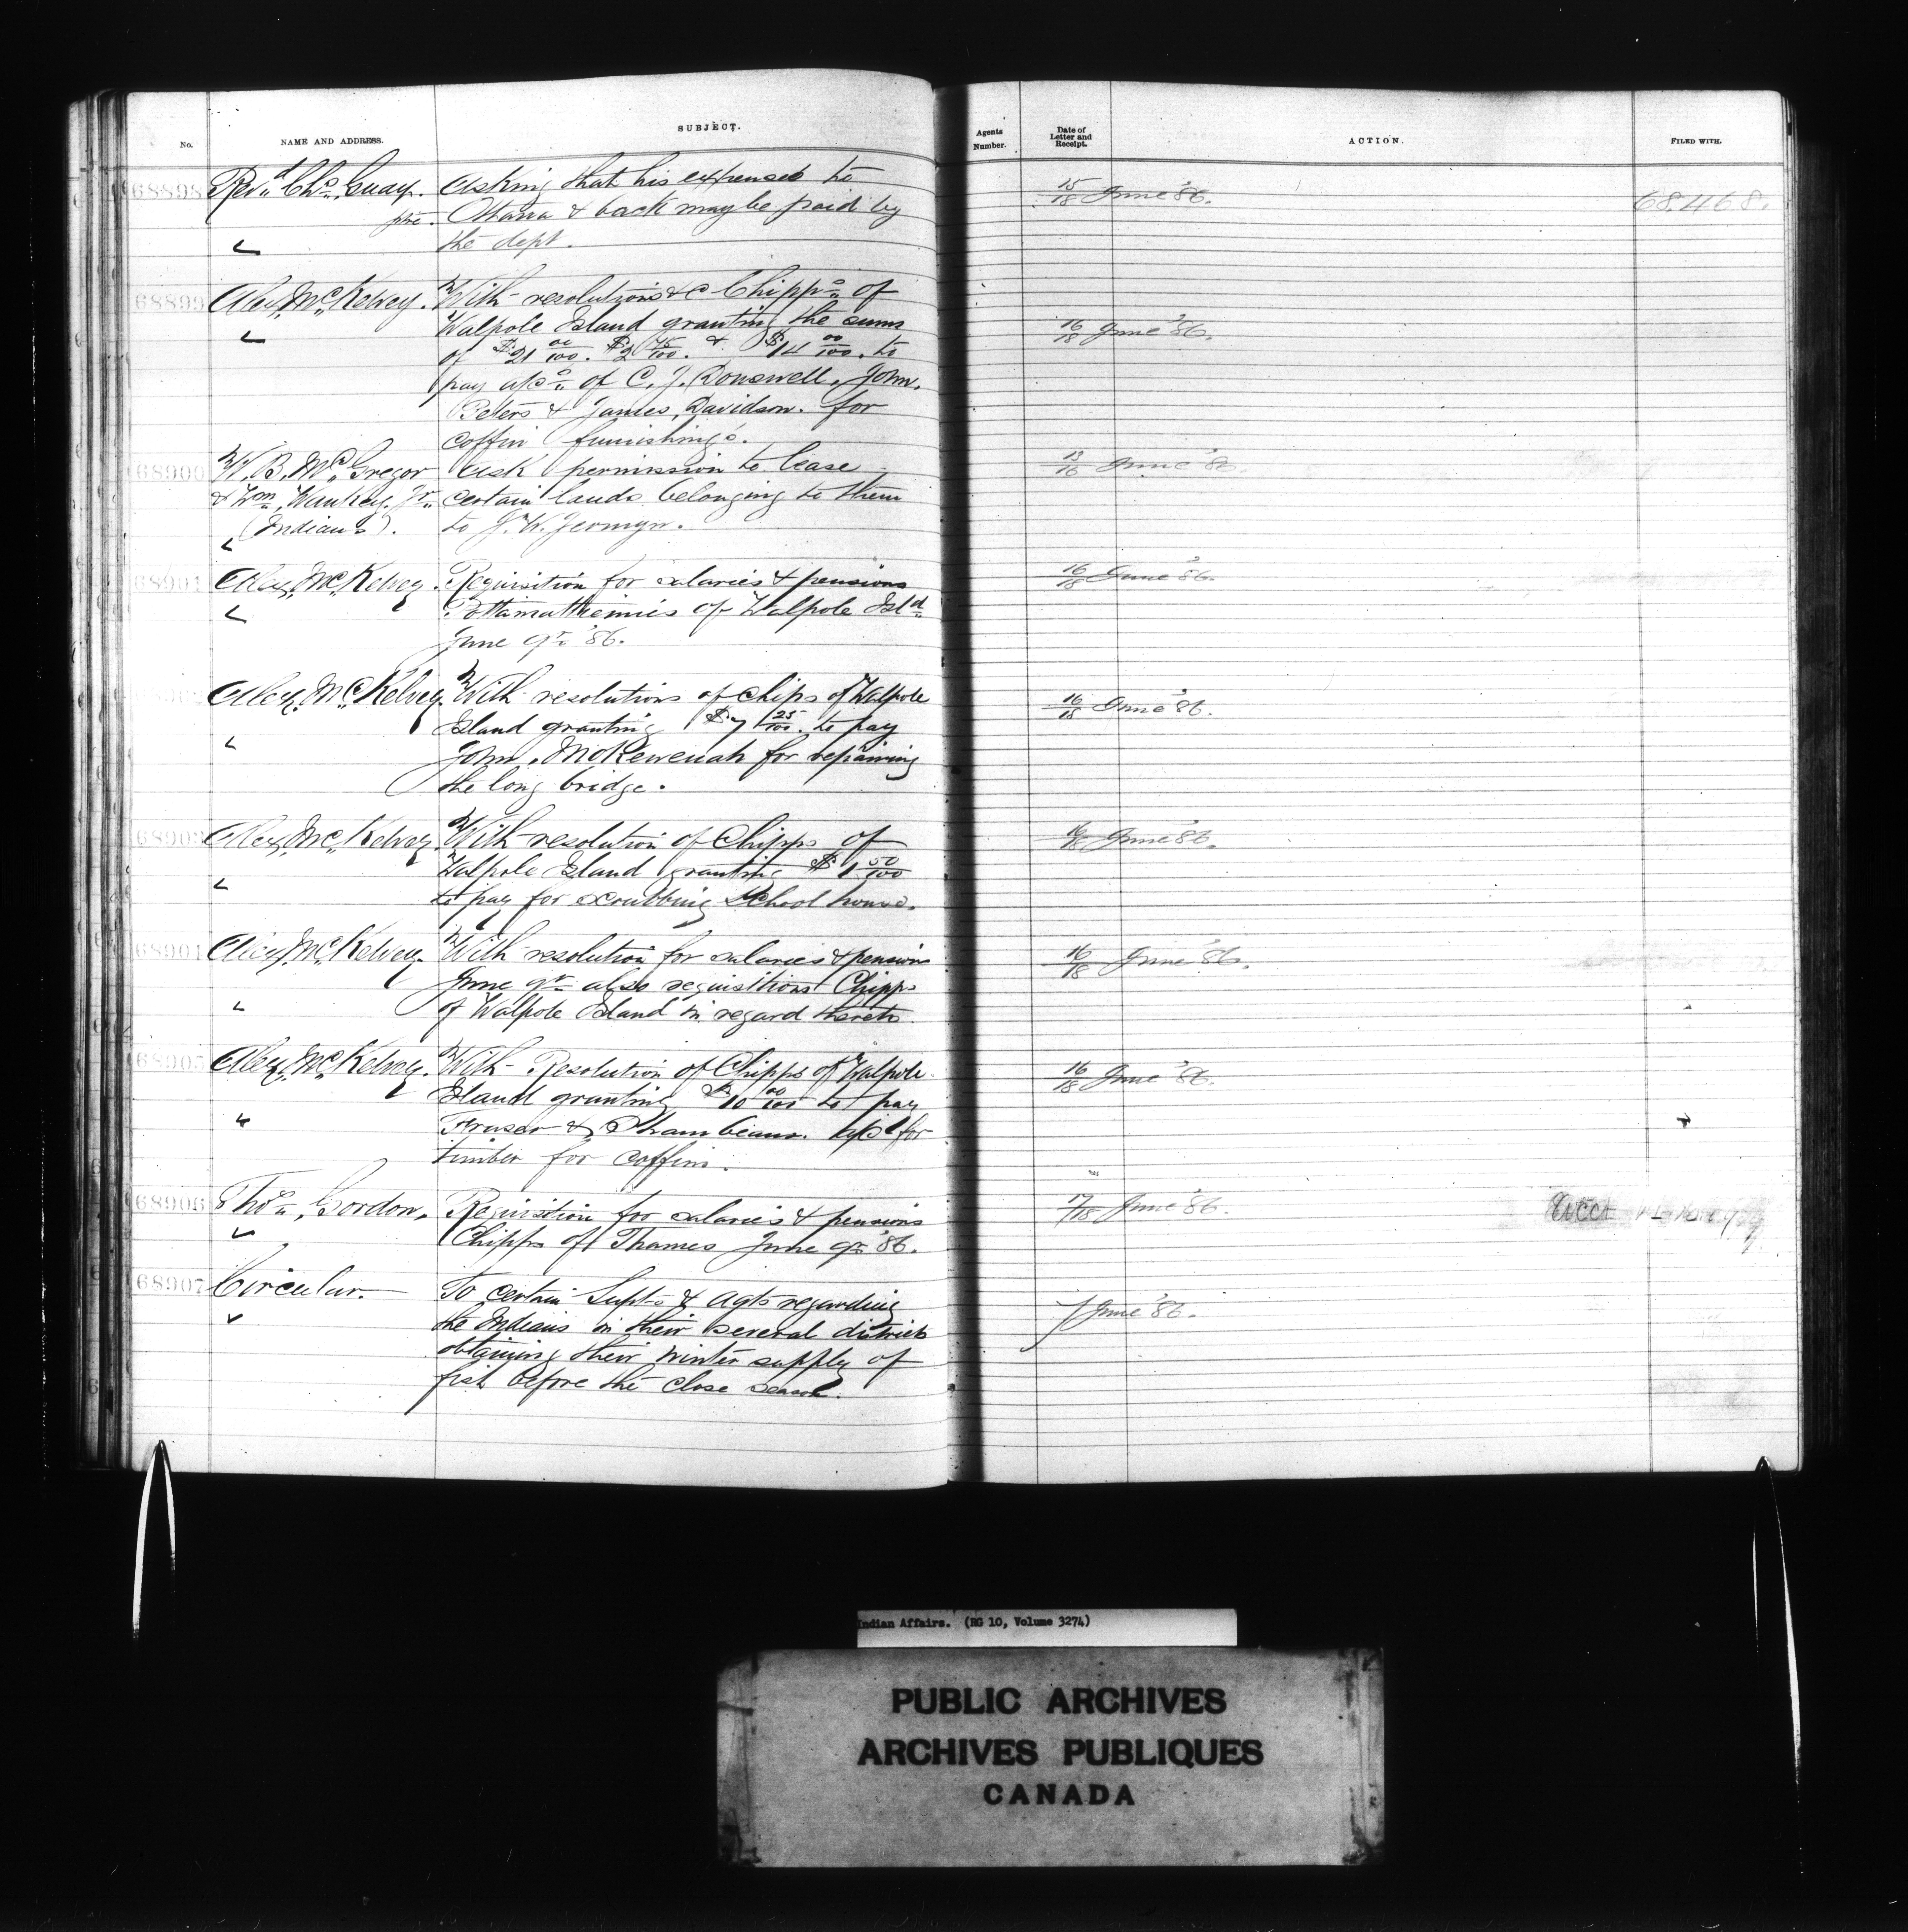 No. NAME AND ADDRESS. SUBJECT. Agents Number. Date of Letter and Receipt. ACTION. FILED WITH.
68898 Revd. Chs. Guay, Asking that his expenses to 15/18 June '86. 68.468.
ptre. Ottawa & back may be paid by
the dept.
68899 Alex. McKelvey. With resolutions &c Chipps. of
Walpole Island granting the sums 16/18 June '86.
of $21 00/100. $2 45/100. & $14 00/100. to
pay a/cs. of C. J. Donswell. John.
Peters & James Davidson. for
coffin furnishing's.
68900 W. B. McGregor ask permission to lease 13/16 June '86.
& Wm. Waukey. Jr. certain lands belonging to them
(Indians). to J. W. Jermyn.
68901 Alex. McKelvey. Requisition for salaries & pensions 16/18 June '86.
Pottamattiemies of Walpole Isld.
June qr. '86.
Alex. McKelvey. With resolutions of Chips of Walpole 16/18 June '86.
Island granting $7 25/100. to pay
John for repairing
the long bridge.
68903 Alex. McKelvey. With resolution of Chipps of 16/18 June '86.
Walpole Island granting $1 50/100
to pay for scrubbing School house.
68904 Alex. McKelvey. With resolution for salaries & pensions 16/18 June '86.
June qr. also requisitions Chipps
of Walpole Island in regard thereto.
68905 Alex. McKelvey. With Resolution of Chipps of Walpole 16/18 June '86.
Island granting $10 00/100 to pay
Fraser & a/c for
timber for coffins.
68906 Thos. Gordon, Requisition for salaries & pensions 17/18 June '86. Acct
Chipps of Thames June qr. '86.
68907 Circular. To certain Supts & agts regarding
the Indians in their several districts 7 June '86.
obtaining their winter supply of
fish before the close season.
Indian Affairs. (RG 10, Volume 3274)
PUBLIC ARCHIVES
ARCHIVES PUBLIQUES
CANADA